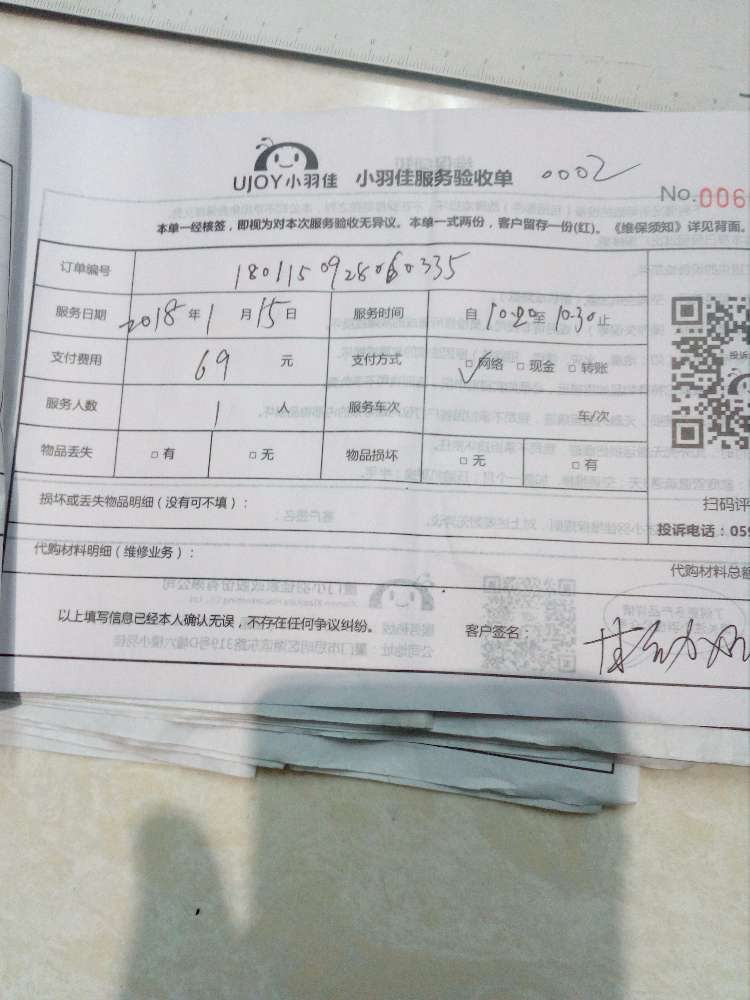 UJOY小羽佳 小羽佳服务验收单 0002
No.006
本单一经核签，即视为对本次服务验收无异议。本单一式两份，客户留存一份(红)。《维保须知》详见背面。
订单编号 1801150928060335
服务日期 2018年1月15日 服务时间 自10:20至10:30止
支付费用 69 元 支付方式 ☑网络 □现金 □转账
服务人数 1 人 服务车次 车/次
物品丢失 □有 □无 物品损坏 □无 □有
损坏或丢失物品明细（没有可不填）： 扫码评
投诉电话：059
代购材料明细（维修业务）： 代购材料总额
以上填写信息已经本人确认无误，不存在任何争议纠纷。 客户签名：